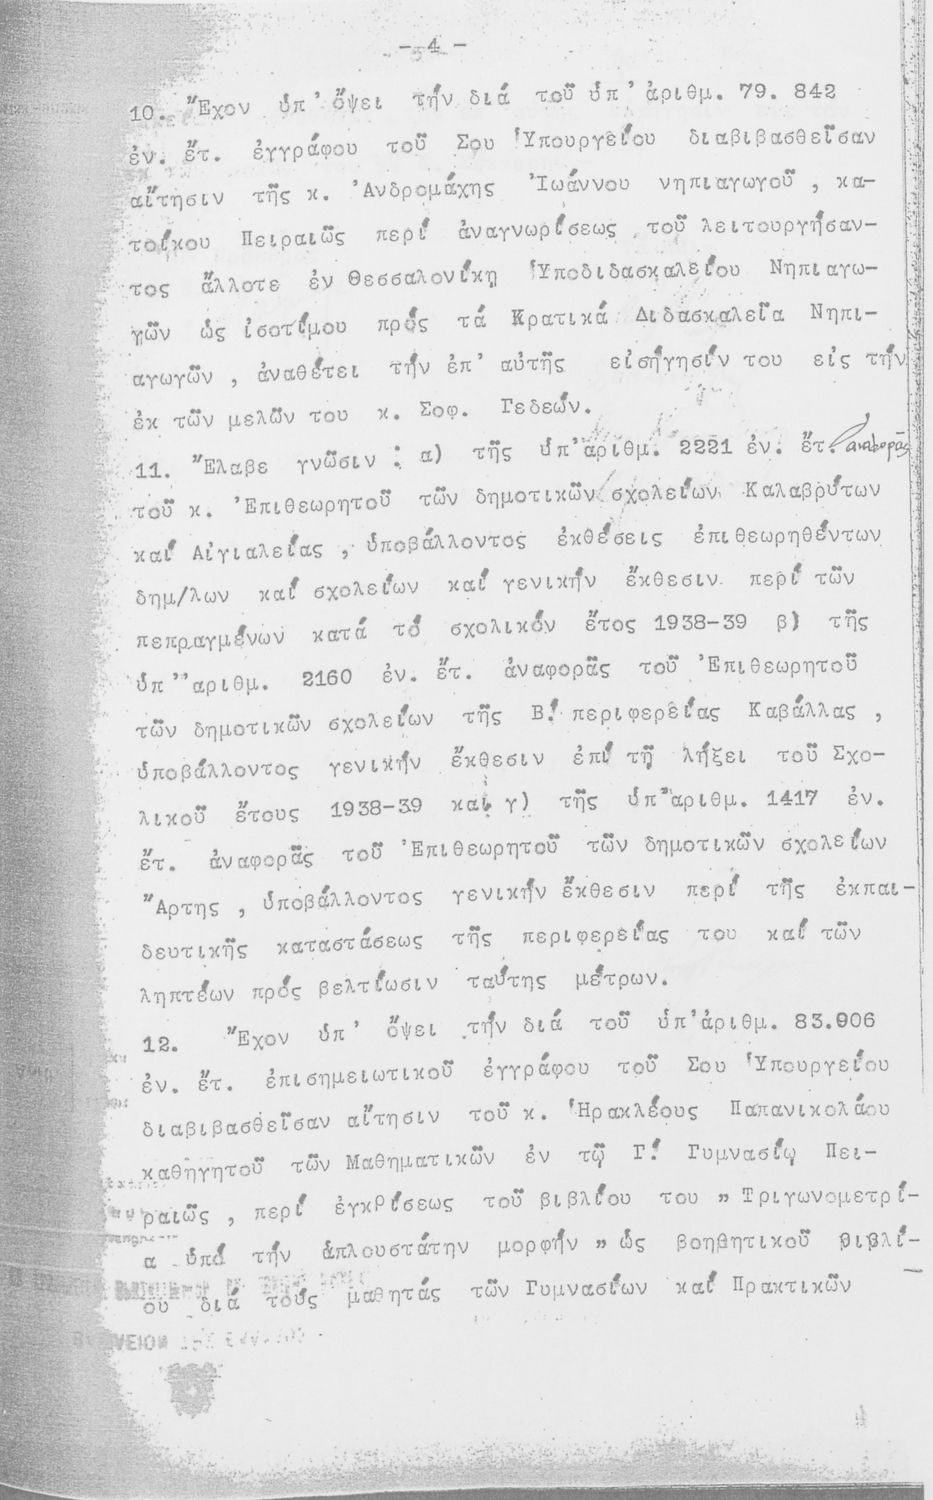 - 4 -
10. Ἔχον ὑπ' ὄψει τήν διά τοῦ ὑπ' ἀριθμ. 79. 842
ἐν. ἔτ. ἐγγράφου τοῦ Σου Ὑπουργείου διαβιβασθεῖσαν
αἴτησιν τῆς κ. Ἀνδρομάχης Ἰωάννου νηπιαγωγοῦ , κα-
τοίκου Πειραιῶς περί ἀναγνωρίσεως τοῦ λειτουργήσαν-
τος ἄλλοτε ἐν Θεσσαλονίκη Ὑποδιδασκαλείου Νηπιαγω-
γῶν ὡς ἰσοτίμου πρός τά Κρατικά Διδασκαλεῖα Νηπι-
αγωγῶν , ἀναθέτει τήν ἐπ' αὐτῆς εἰσήγησίν του εἰς τήν
ἐκ τῶν μελῶν του κ. Σοφ. Γεδεών.
11. Ἔλαβε γνῶσιν : α) τῆς ὑπ' ἀριθμ. 2221 ἐν. ἔτ. ἀναφορᾶς
τοῦ κ. Ἐπιθεωρητοῦ τῶν δημοτικῶν σχολείων Καλαβρύτων
καί Αἰγιαλείας , ὑποβάλλοντος ἐκθέσεις ἐπιθεωρηθέντων
δημ/λων καί σχολείων καί γενικήν ἔκθεσιν περί τῶν
πεπραγμένων κατά τό σχολικόν ἔτος 1938-39 β) τῆς
ὑπ' ἀριθμ. 2160 ἐν. ἔτ. ἀναφορᾶς τοῦ Ἐπιθεωρητοῦ
τῶν δημοτικῶν σχολείων τῆς Β! περιφερείας Καβάλλας ,
ὑποβάλλοντος γενικήν ἔκθεσιν ἐπί τῇ λήξει τοῦ Σχο-
λικοῦ ἔτους 1938-39 καί γ) τῆς ὑπ' ἀριθμ. 1417 ἐν.
ἔτ. ἀναφορᾶς τοῦ Ἐπιθεωρητοῦ τῶν δημοτικῶν σχολείων
Ἄρτης , ὑποβάλλοντος γενικήν ἔκθεσιν περί τῆς ἐκπαι-
δευτικῆς καταστάσεως τῆς περιφερείας του καί τῶν
ληπτέων πρός βελτίωσιν ταύτης μέτρων.
12. Ἔχον ὑπ' ὄψει τήν διά τοῦ ὑπ' ἀριθμ. 83.906
ἐν. ἔτ. ἐπισημειωτικοῦ ἐγγράφου τοῦ Σου Ὑπουργείου
διαβιβασθεῖσαν αἴτησιν τοῦ κ. Ἡρακλέους Παπανικολάου
καθηγητοῦ τῶν Μαθηματικῶν ἐν τῷ Γ! Γυμνασίῳ Πει-
ραιῶς , περί ἐγκρίσεως τοῦ βιβλίου του " Τριγωνομετρί-
α ὑπό τήν ἁπλουστάτην μορφήν " ὡς βοηθητικοῦ βιβλί-
ου διά τούς μαθητάς τῶν Γυμνασίων καί Πρακτικῶν